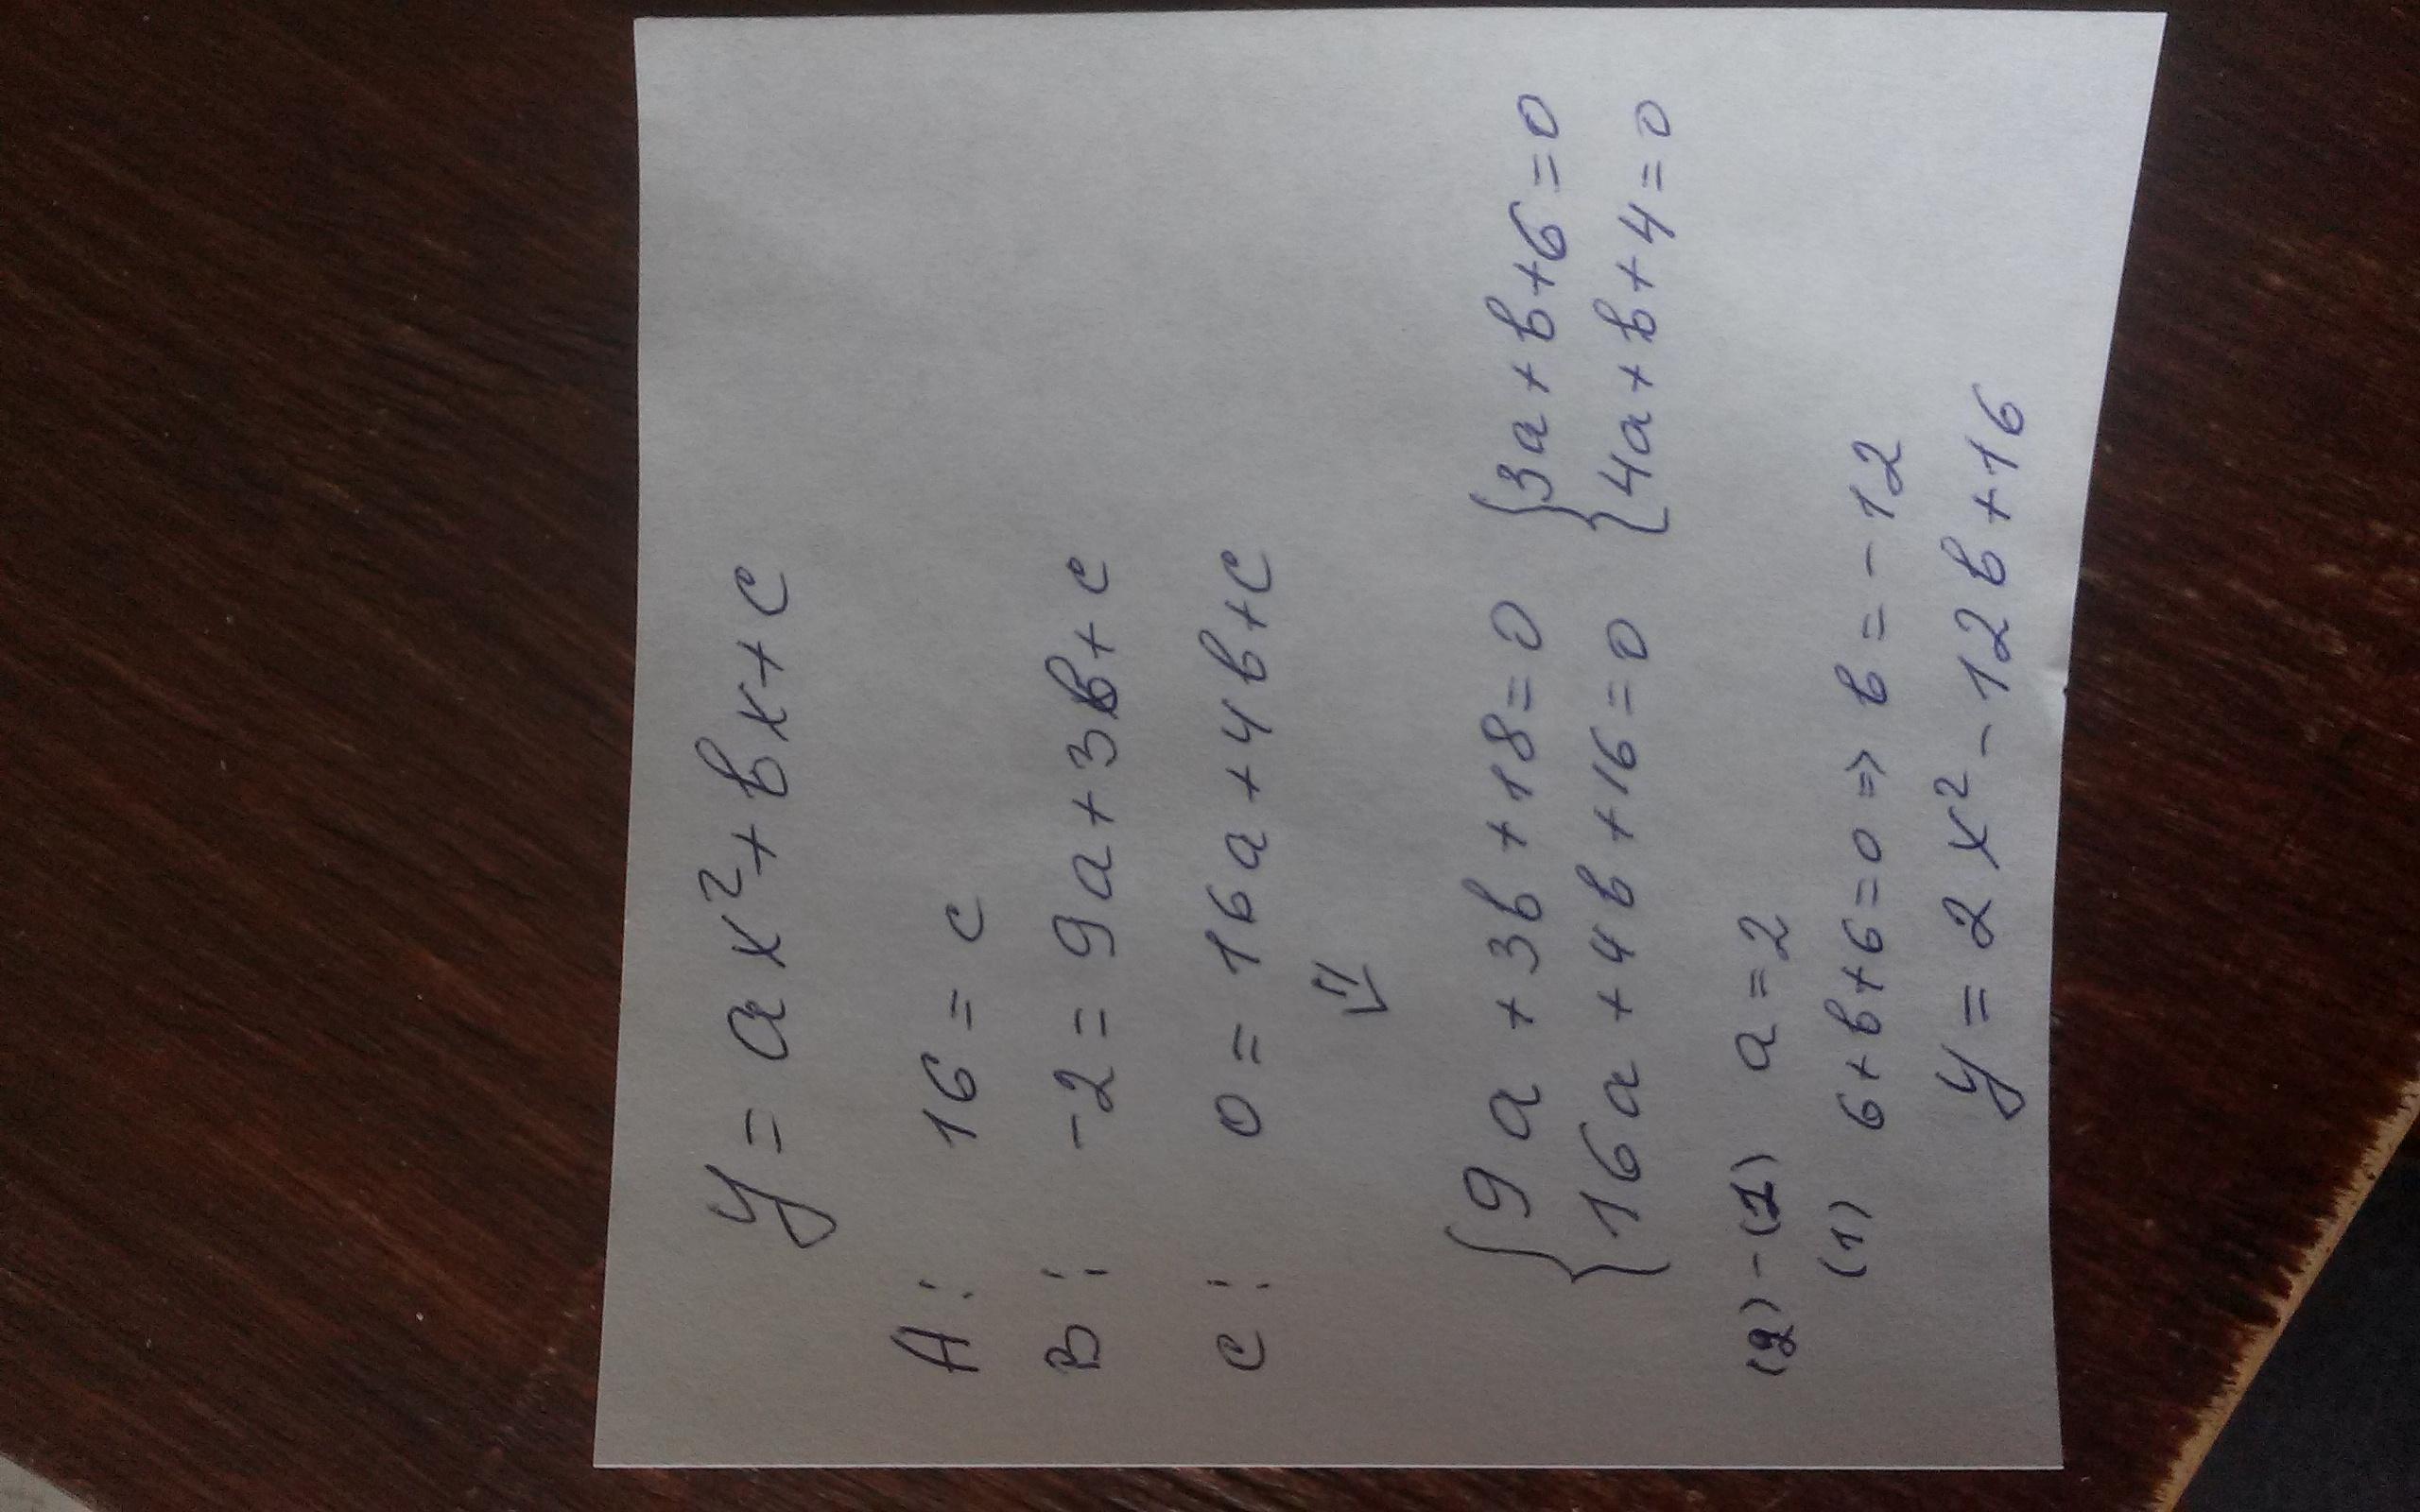 y = ax² + bx + c
A: 16 = c
B: -2 = 9a + 3b + c
C: 0 = 16a + 4b + c
⇓
{9a + 3b + 18 = 0 {3a + b + 6 = 0
{16a + 4b + 16 = 0 {4a + b + 4 = 0
(2) - (1) a = 2
(1) 6 + b + 6 = 0 => b = -12
y = 2x² - 12b + 16